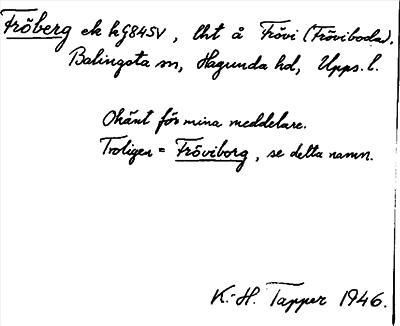 Fröberg ek kG845V, lht å Frövi (Fröviboda).
Balingsta sn, Hagunda hd, Upps. l.
Okänt för mina meddelare.
Troligen = Fröviborg, se detta namn.
K.-H. Tapper 1946.